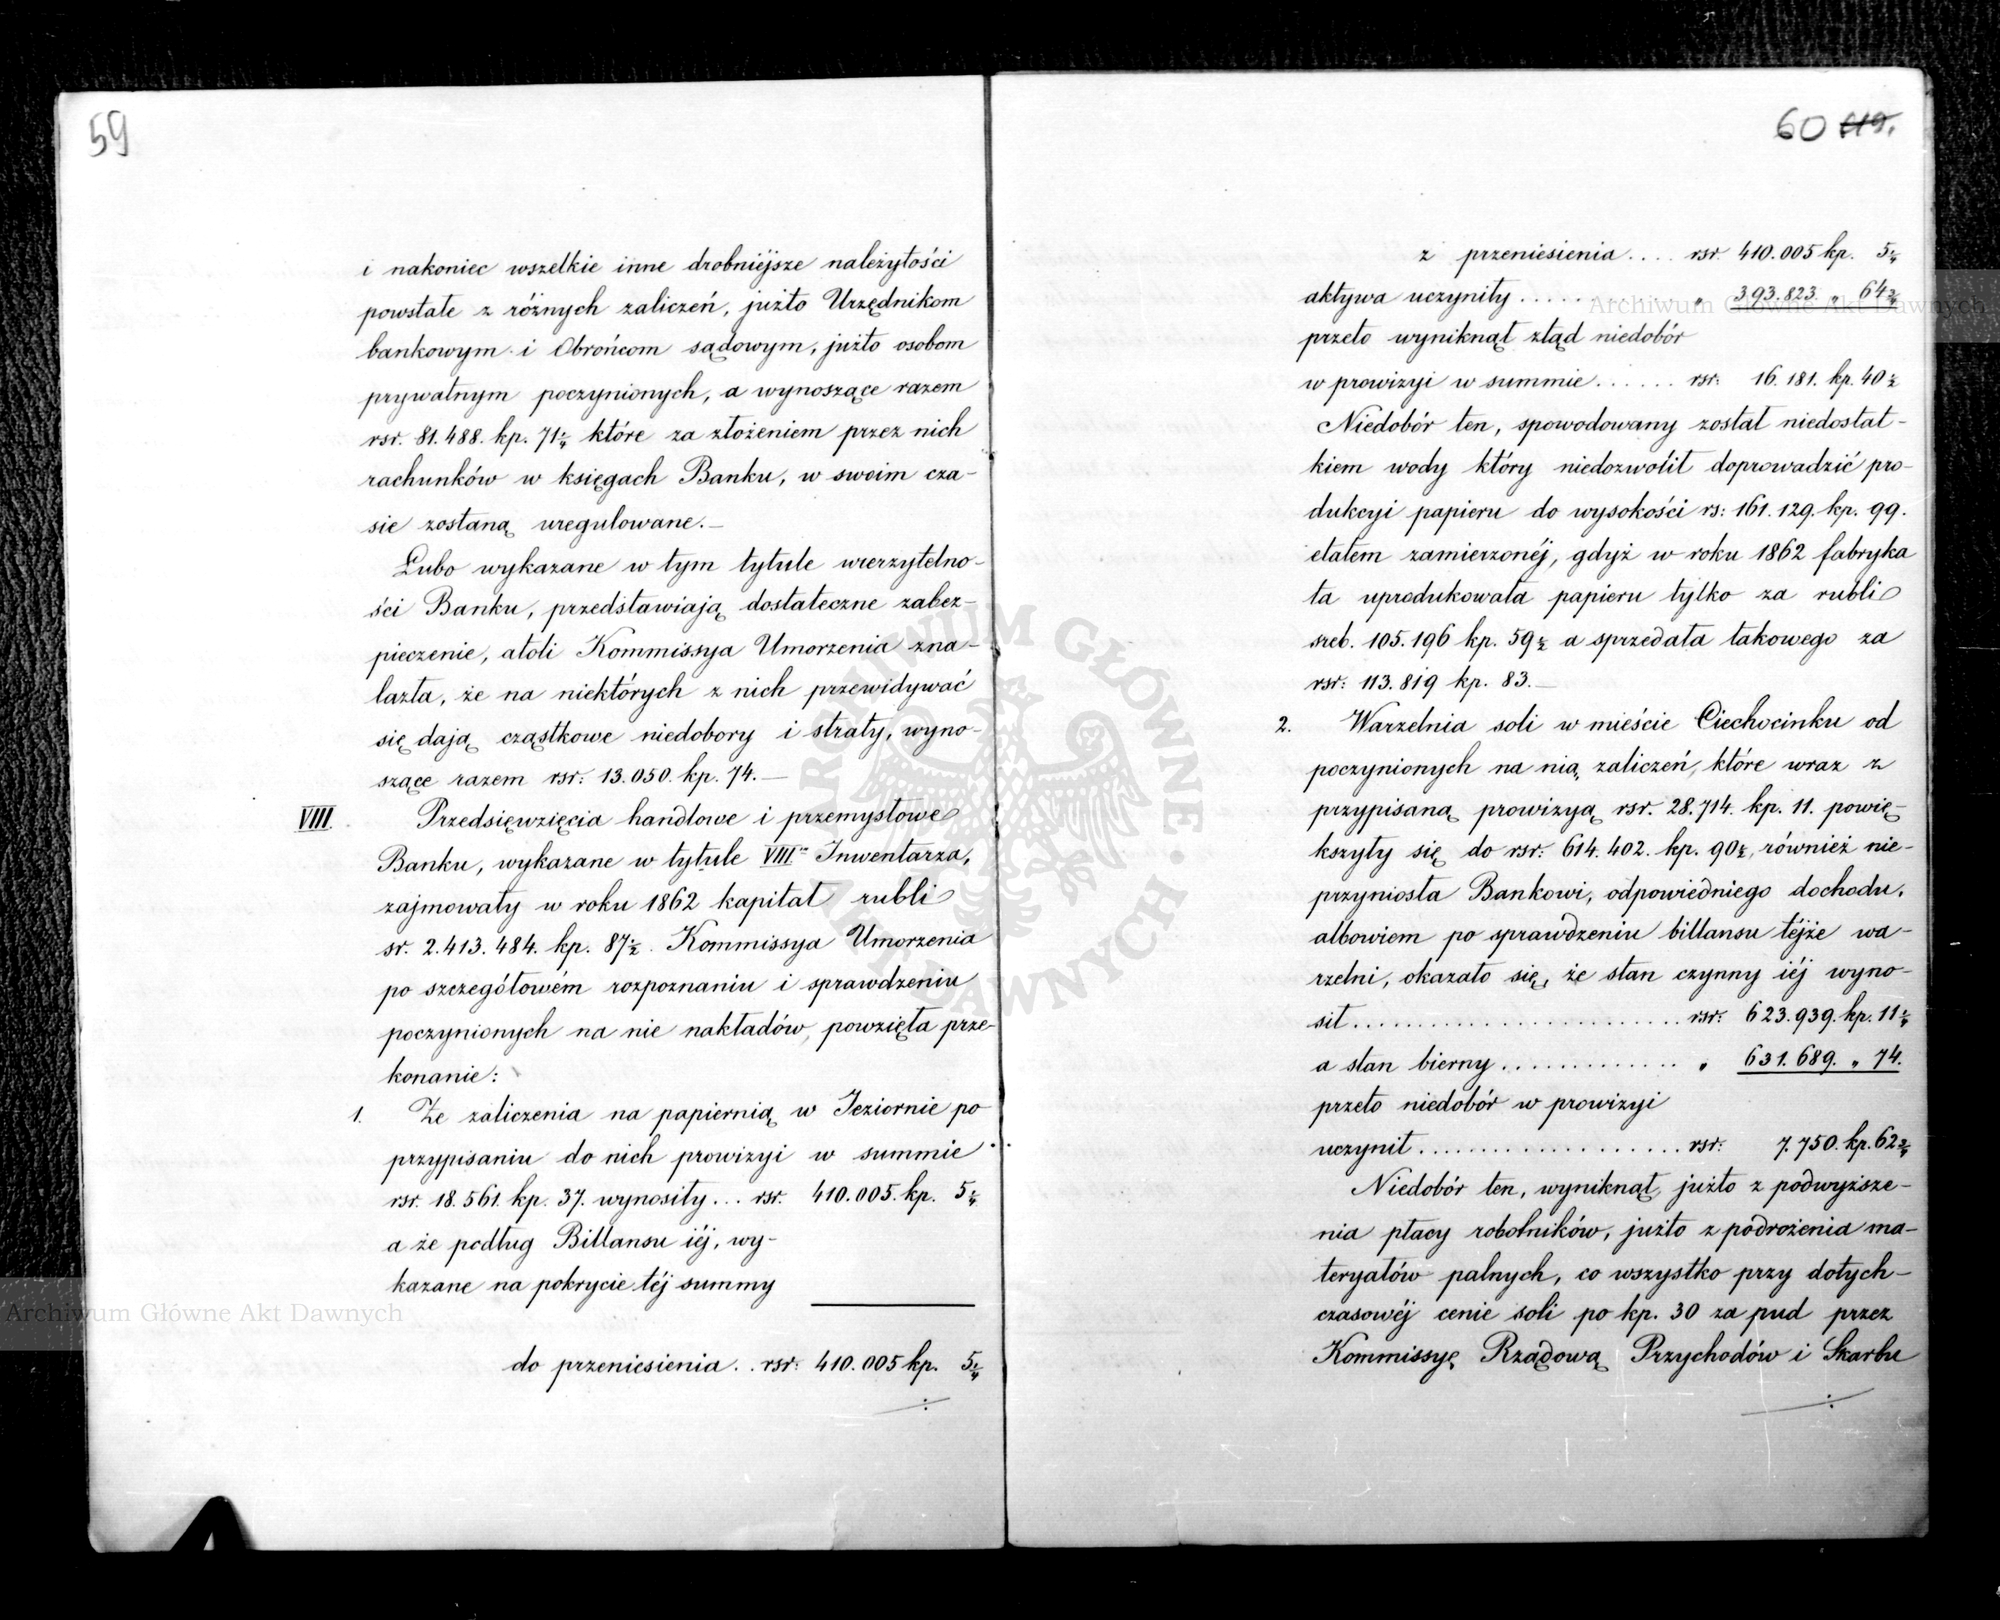 59
i nakoniec wszelkie inne drobniéjsze należytości
powstałe z różnych zaliczeń, jużto Urzędnikom
bankowym i Obrońcom sądowym, jużto osobom
prywatnym poczynionych, a wynoszące razem
rsr. 81.488. kp. 71¼ które za złożeniem przez nich
rachunków w księgach Banku, w swoim cza-
sie zostaną uregulowane.—
Lubo wykazane w tym tytule wierzytelno-
ści Banku, przedstawiają dostateczne zabez-
pieczenie, atoli Kommissya Umorzenia zna-
lazła, że na niektórych z nich przewidywać
się dają cząstkowe niedobory i straty, wyno-
szące razem rsr: 13.050. kp. 74.—
VIII. Przedsięwzięcia handlowe i przemysłowe
Banku, wykazane w tytule VIII Inwentarza,
zajmowały w roku 1862 kapitał rubli
sr. 2.413.484. kp. 87½. Kommissya Umorzenia
po szczegółowém rozpoznaniu i sprawdzeniu
poczynionych na nie nakładów, powzięła prze-
konanie:
1. Że zaliczenia na papiernią w Jeziornie po
przypisaniu do nich prowizyi w summie
rsr. 18.561. kp. 37. wynosiły... rsr. 410.005. kp. 5¼
a że podług Billansu iéj, wy-
kazane na pokrycie téj summy
do przeniesienia.. rsr: 410.005 kp. 5¼
60 119.
z przeniesienia.... rsr. 410.005 kp. 5¼
aktywa uczyniły..... „ 393.823. „ 64¾
przeto wyniknął ztąd niedobór
w prowizyi w summie...... rsr: 16.181. kp. 40½
Niedobór ten, spowodowany został niedostat-
kiem wody który niedozwolił doprowadzić pro-
dukcyi papieru do wysokości rs: 161.129. kp. 99.
etatem zamierzonéj, gdyż w roku 1862 fabryka
ta uprodukowała papieru tylko za rubli
sreb. 105.196 kp. 59½ a sprzedała takowego za
rsr: 113.819 kp. 83.—
2. Warzelnia soli w mieście Ciechocinku od
poczynionych na nią zaliczeń, które wraz z
przypisaną prowizyą rsr. 28.714. kp. 11. powię-
kszyły się do rsr: 614.402. kp. 90½, również nie-
przyniosła Bankowi, odpowiedniego dochodu,
albowiem po sprawdzeniu billansu téjże wa-
rzelni, okazało się, że stan czynny iéj wyno-
sił........................ rsr: 623.939. kp. 11¼
a stan bierny............. „ 631.689. „ 74.
przeto niedobór w prowizyi
uczynił.................... rsr: 7.750. kp. 62¾
Niedobór ten, wyniknął, jużto z podwyższe-
nia płacy robotników, jużto z podrożenia ma-
teryałów palnych, co wszystko przy dotych-
czasowéj cenie soli po kp. 30 za pud przez
Kommissyę Rządową Przychodów i Skarbu
Archiwum Główne Akt Dawnych
Archiwum Główne Akt Dawnych
ARCHIWUM GŁÓWNE AKT DAWNYCH